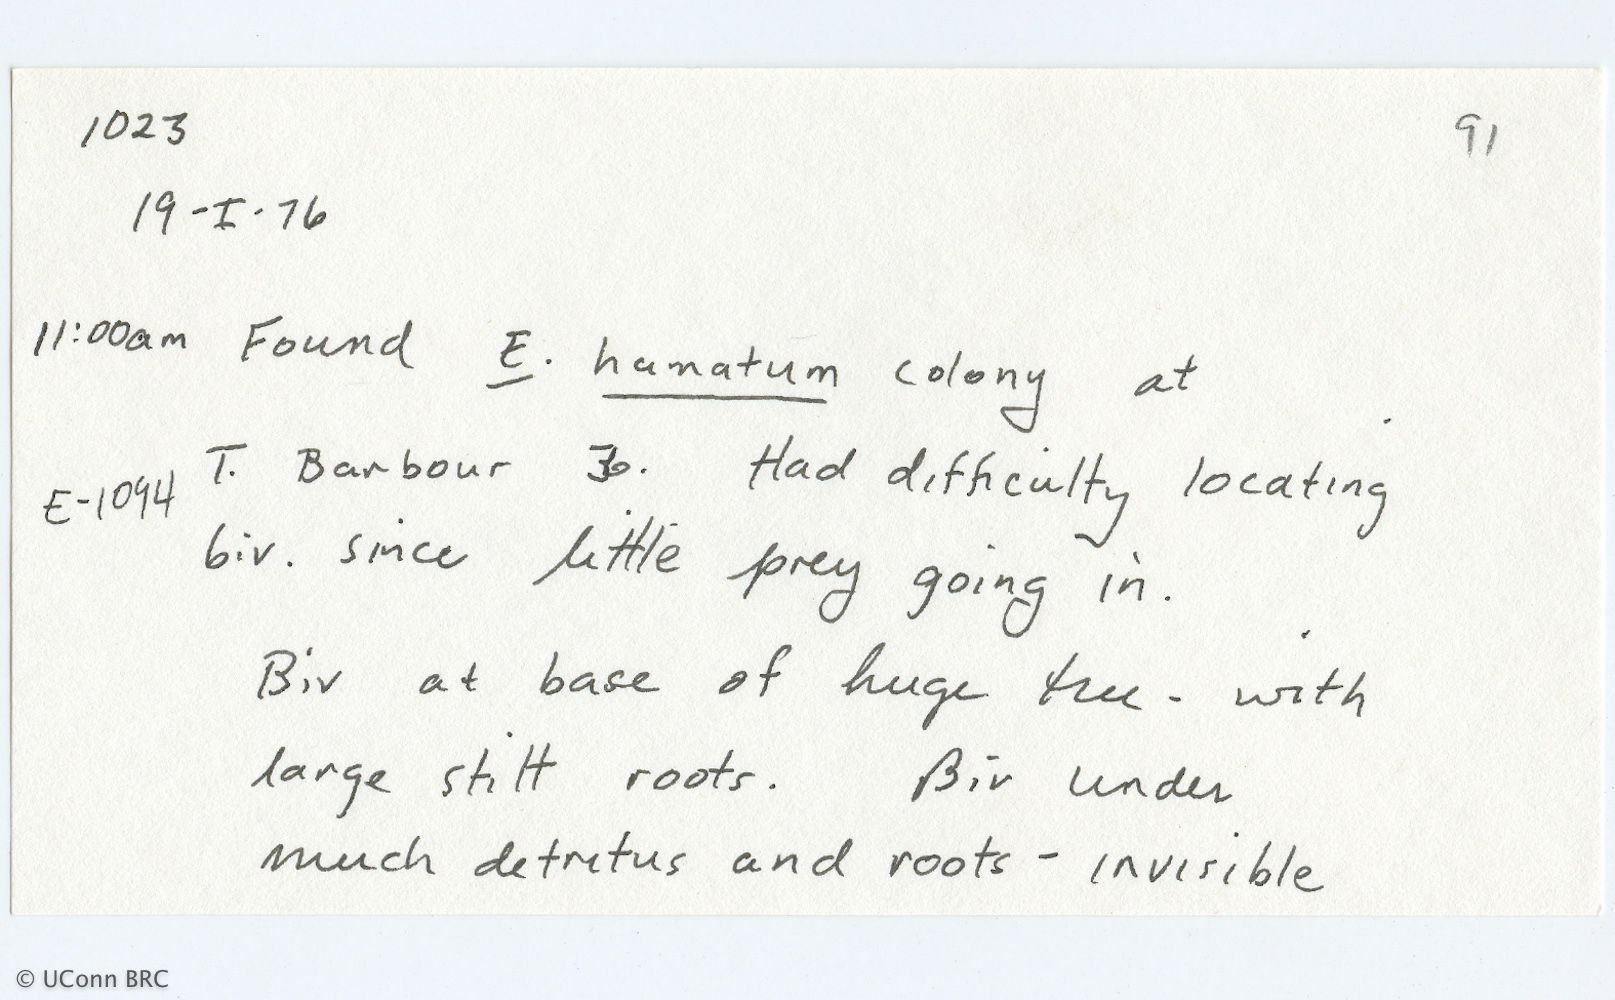 1023
91
19-I-76
11:00am Found E. hamatum colony at
T. Barbour. Had difficulty locating
E-1094
biv. since little prey going in.
Biv at base of huge tree - with
large stilt roots. Biv under
much detritus and roots - invisible
© UConn BRC